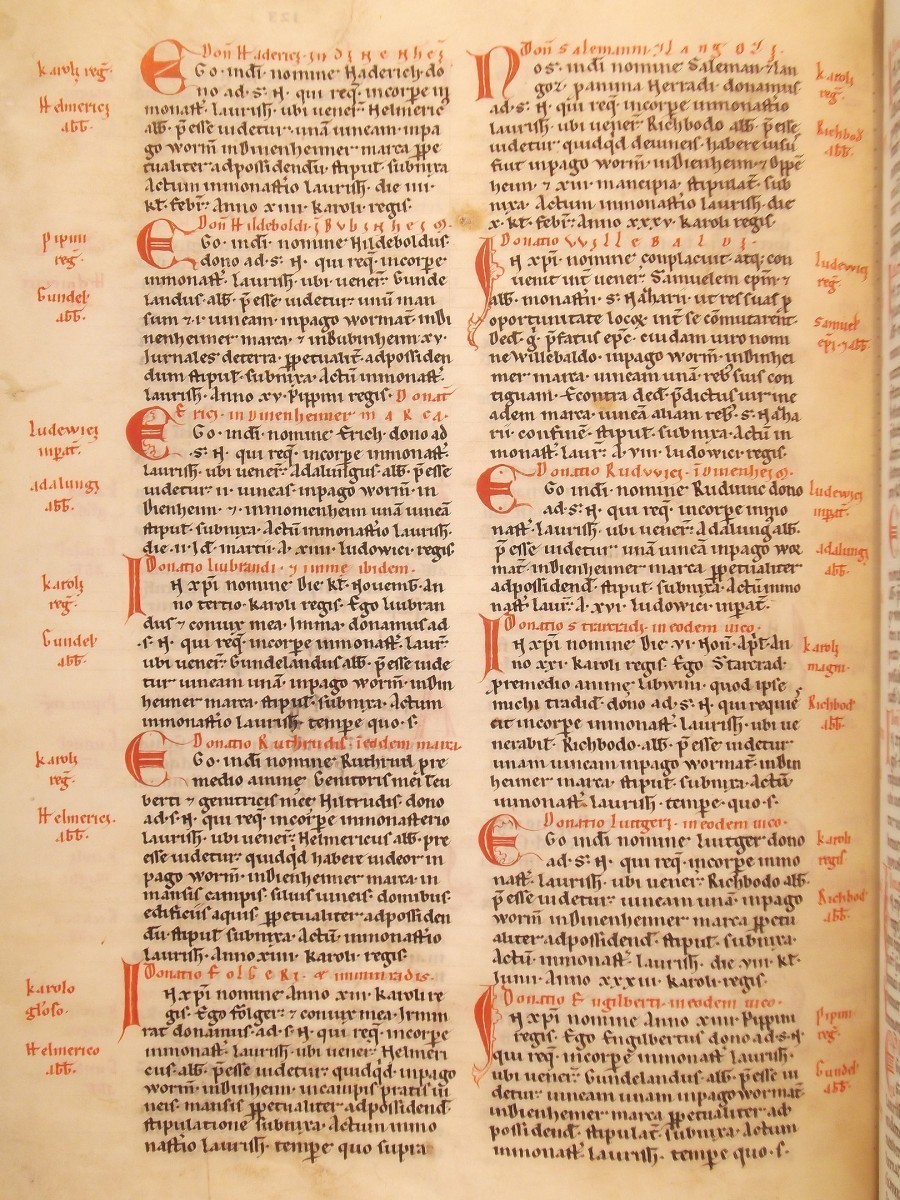 karoli reg̃.
Helmerici
abb̃.
Pipini
reg̃.
Gundel̃
abb̃.
Ludewici
inpat̃.
Adalungi
abb̃.
karoli
reg̃.
Gundel̃
abb̃.
karoli
reg̃.
Helmerici.
abb̃.
karolo
gl̃oso.
Helmerico
abb̃.
Don̄ Haderici. in dinenhei
Ego. in d̄i nomine Haderich. do
no ad. s. N. qui req̄. in corpe in
monast̃. laurish̃. ubi uener̃. Helmeric̃
abb̃. p̄esse uidetur. unā uineam. in pa
go worm̃. in Dienheimer marca. ppe
tualiter ad possidendū. stipul̃. subnixa
Actum in monast̃io laurish̃. die .iiii.
kl̃. febr̃. Anno .xiiii. karoli regis.
Don̄ Hildeboldi. i Bubinheim.
Ego. in d̄i nomine Hildeboldus.
dono ad. s. N. qui req̄. in corpe.
in monast̃. laurish̃. ubi uener̃. Gunde
landus. abb̃. p̄esse uidetur. unū man
sum. ⁊ .i. uineam. in pago wormat̃. in Di
nenheimer marca. ⁊ in Bubinheim .xv.
Iurnales de terra. ppetualit̃. ad possiden
dum stipul̃. subnixa. Actū in monast̃.
laurish̃. Anno .xv. Pippini regis. Donat̃
Erici. in Dinenheimer marca.
Ego. in d̄i nomine. Erich. dono ad
.s. N. qui req̄. in corpe. in monast̃.
laurish̃. ubi uener̃. Adalungus. abb̃. p̄esse
uidetur. ii. uineas. in pago worm̃. in
Dienheim. ⁊. in nomenheim unā uineā
stipul̃. subnixa. Actū in monast̃io laurish̃.
die .ii. Id̃. martii. A. xiiii. ludowici regis.
Donatio Liubrandi. ⁊ imme ibidem.
In xp̄i nomine. Die kl̃. Nouemb̃. An
no tertio. karoli regis. Ego liubran
dus. ⁊ coniux mea. Imma. donamus ad
.s. N. qui req̄. in corpe in monast̃. laur̃.
ubi uener̃. Gundelandus abb̃. p̄esse uide
tur. uineam. unā. in pago worm̃. in Din
heimer marca. stipul̃. subnixa. Actum
in monastio laurish̃. tempe. quo. s.
Donatio Ruthrudis. i eodem marca.
Ego. in d̄i nomine. Ruthrud. pre
medio anime. Genitoris mei. Teu
berti. ⁊ genitricis mee. Hiltrudis. dono
ad. s. N. qui req̄. in corpe in monasterio
laurish̃. ubi uener̃. Helmericus abb̃. pre
esse uidetur. quidqd habere uideor in
pago worm̃. in Dienheimer marca. in
mansis. campis. siluis. uineis. domibus
edificiis. aquis. ppetualiter ad possiden
dū. stipul̃. subnixa. Actū. in monast̃io
laurish̃. Anno xiiii. karoli regis.
Donatio Folgeri. et irminradis.
In xp̄i nomine. Anno xiii. karoli re
gis. Ego folger. ⁊ coniux mea. Irmin
rat. donamus. ad. s. N. qui req̄. in corpe
in monast̃. laurish̃. ubi uener̃. Helmeri
cus. abb̃. p̄esse uidetur. quidqd̃. in pago
worm̃. in Dinheim. in campis. pratis ui
neis. mansis. ppetualiter ad possidend̃.
stipulatione subnixa. Actum in mo
nast̃io laurish̃. tempe quo supra
Don̄ Salemanni. ⁊ Langoz.
Nos. in d̄i nomine. Saleman. ⁊ lan
goz. p anima Herradi. donamus
ad. s. N. qui req̄. in corpe in monast̃io
laurish̃. ubi uener̃. Richbodo abb̃. p̄esse
uidetur. quidqd̃. deuineis. habere uisi
fuit. in pago worm̃. in Dienheim. ⁊ Oppē
heim. ⁊ xiii. mancipia. stipulat̃. sub
nixa. Actum in monast̃io laurish̃. die
.x. kl̃. febr̃. Anno .xxxv. karoli regis.
Donatio Willebaldi.
In xp̄i nomine. conplacuit atq̨; con
uenit int̃ uener̃. Samuelem ep̄m. ⁊
abb̃. monast̃ii. s. Naharii. ut res suas p
oportunitate locoꝝ. int̃ se cōmutarent̃.
Ded̃. g̃. p̄fatus epc̄. cuidam uiro nomi
ne Willebaldo. in pago worm̃. in Dinhei
mer marca. uineam unā. rebꝫ suis con
tiguam. Econtra ded̃. p̄dictus uir in e
adem marca. uineā aliam reb̃. s. Naha
rii. confinē. stipul̃. subnixa. Actū in
monast̃. laur̃. A. viii. ludowici regis.
Donatio Ruduuici. i Dinenheim.
Ego. in d̄i nomine. Ruduuic dono
ad. s. N. qui req̄. in corpe in mo
nast̃. laurish̃. ubi uener̃. Adalung̃ abb̃.
p̄esse uidetur. unā uineā in pago wor
mat̃. in Dienheimer marca. ppetualiter
ad possidend̃. stipul̃. subnixa. Actū in mo
nast̃. laur̃. A. xvi. ludowici. inpat̃.
Donatio Starcradi. in eodem uico.
In xp̄i nomine. Die .vi. Non̄. Apr̃l. An
no xxi. karoli regis. Ego Starcrad.
p remedio anime. Libwini. quod ipse
michi tradid̃. dono ad. s. N. qui requie
cit in corpe in monast̃. laurish̃. ubi ue
nerabil̃. Richbodo. abb̃. p̄esse uidetur
unam uineam in pago wormat̃. in Din
heimer marca. stipul̃. subnixa. Actū.
in monast̃. laurish̃. tempe. quo. s.
Donatio Liutgeri. in eodem uico.
Ego. in d̄i nomine. Liutger dono
ad. s. N. qui req̄. in corpe in mo
nast̃. laurish̃. ubi uener̃. Richbodo abb̃.
p̄esse uidetur. uineam unā. in pago
worm̃. in Dinenheimer marca. ppetu
aliter ad possidend̃. stipul̃. subnixa.
Actum in monast̃. laurish̃. die .viii. kl̃.
Iunii. Anno .xxxiii. karoli regis.
Donatio Engilberti. in eodem uico.
In xp̄i nomine. Anno xiiii. Pippini
regis. Ego Engilbertus. dono ad. s. N.
qui req̄. in corpe in monast̃. laurish̃.
ubi uener̃. Gundelandus. abb̃. p̄esse ui
detur. uineam unam in pago wormat̃.
in Dinenheimer marca. ppetualiter ad
possidend̃. stipulat̃. subnixa. Actum
in monast̃. laurish̃. tempe. quo. s.
karoli
reg̃.
Richbodi
abb̃.
Ludewici
reg̃.
Samuel̃
ep̄i. ⁊ abb̃.
Ludewici
inpat̃.
Adalungi
abb̃.
karoli
magni.
Richbod̃
abb̃.
karoli
regis
Richbod̃
abb̃.
Pipini
reg̃.
Gundel̃
abb̃.